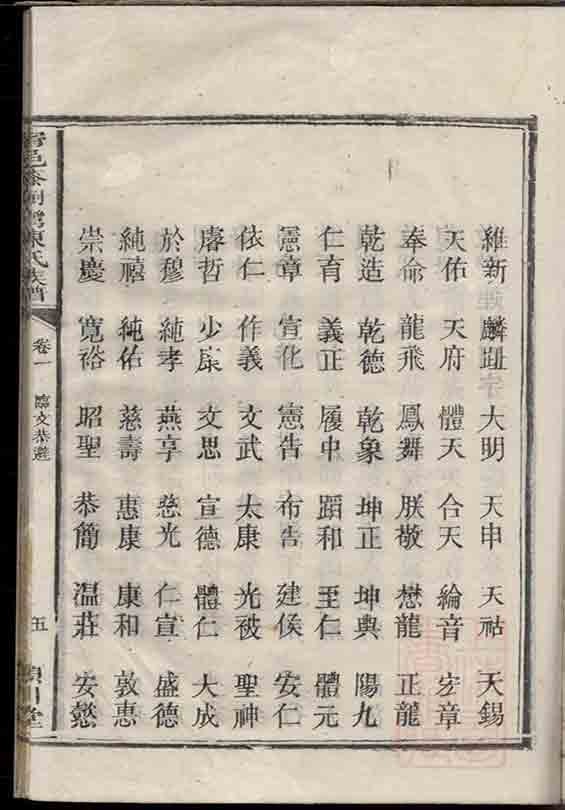 維新 麟趾 大明 天申 天祜 天錫
天佑 天府 體天 合天 綸音 宏章
奉命 龍飛 鳳舞 朕敬 懋龍 正龍
乾造 乾德 乾象 坤正 坤典 陽九
仁育 義正 履中 蹈和 至仁 體元
憲章 宣化 憲告 布告 建侯 安仁
依仁 作義 文武 太康 光被 聖神
睿哲 少康 文思 宣德 體仁 大成
於穆 純孝 燕享 慈光 仁宣 盛德
純禧 純佑 慈壽 惠康 康和 敦惠
崇慶 寬裕 昭聖 恭簡 温莊 安懿
陳氏族譜
卷一
臨文恭避
五
川堂